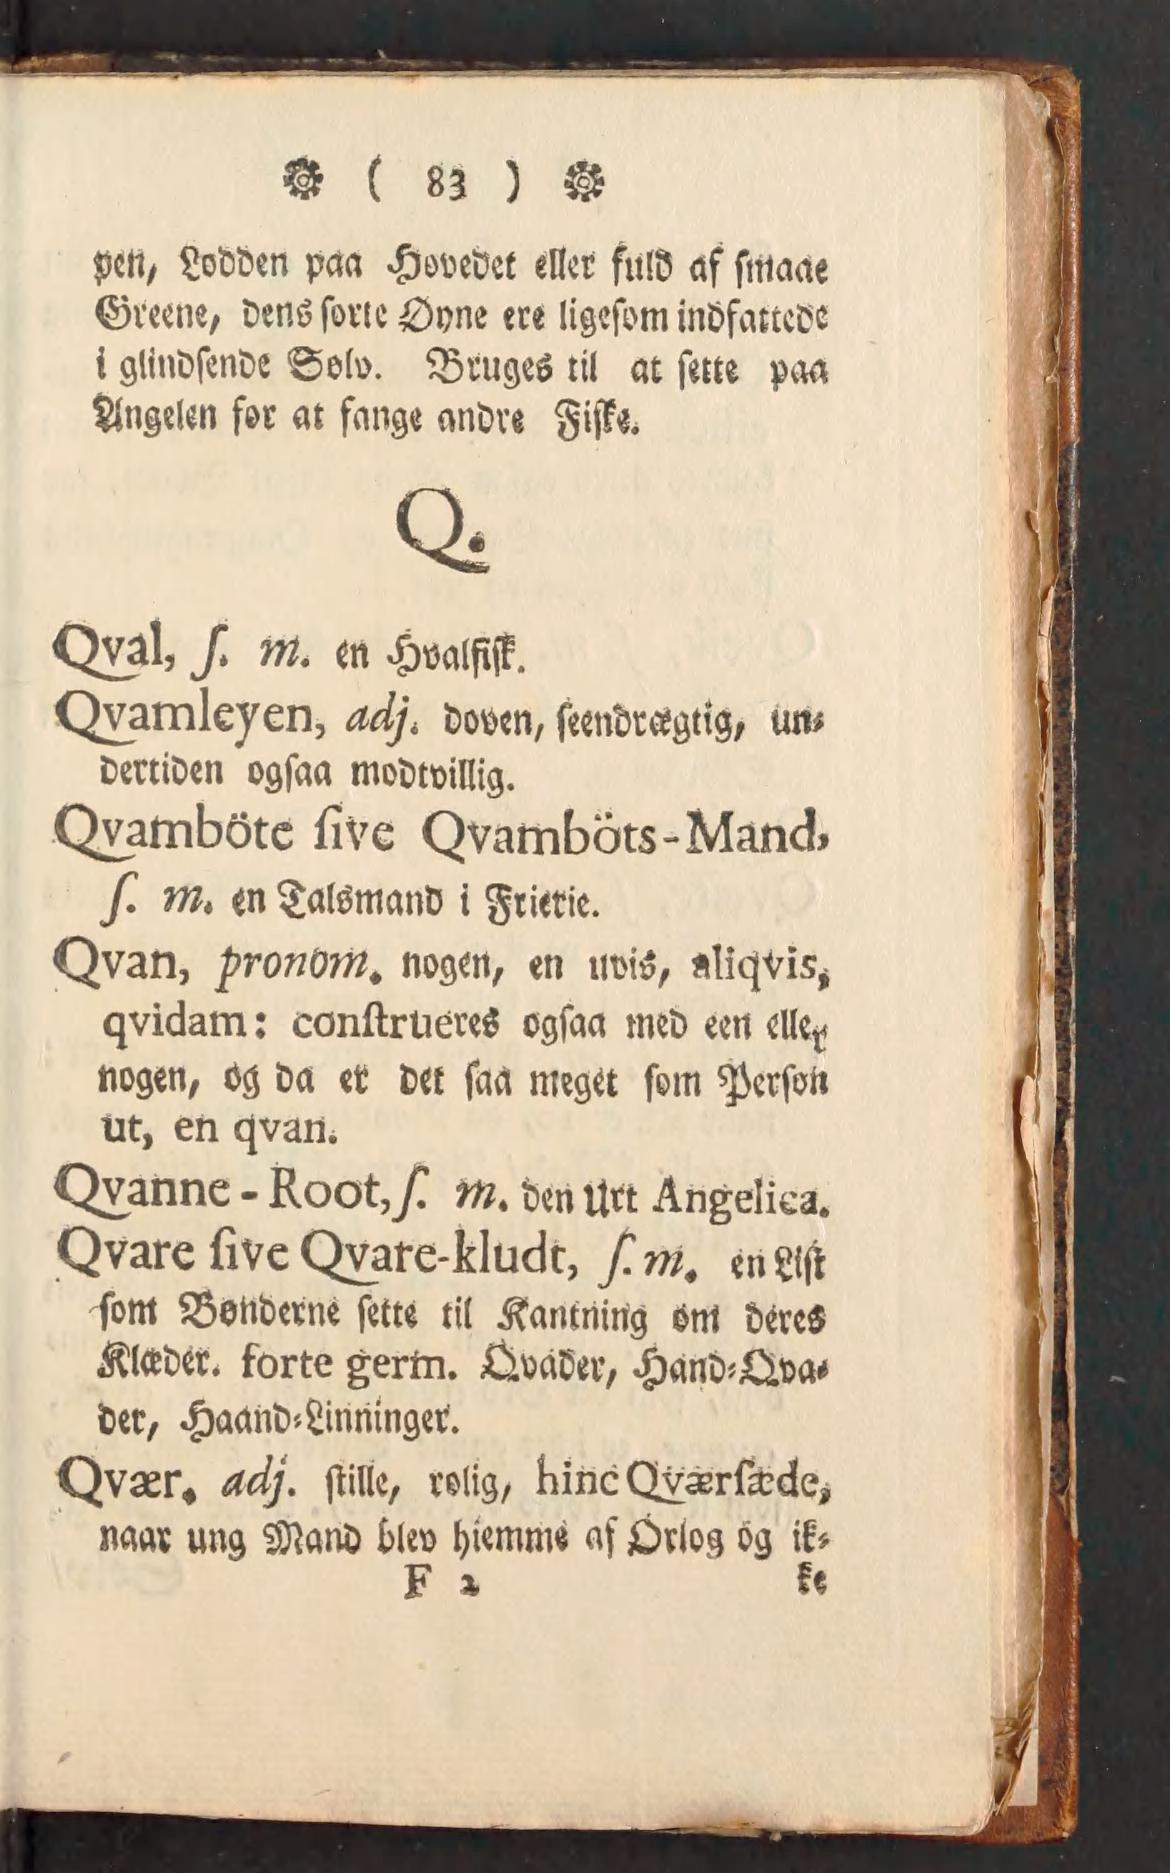 ( 83 )
pen, Lodden paa Hovedet eller fuld af smaae
Greene, dens sorte Øyne ere ligesom indfattede
i glindsende Sølv. Bruges til at sette paa
Angelen for at fange andre Fiske.
Q.
Qval, ſ. m. en Hvalfisk.
Qvamleyen, adj. doven, seendrægtig, un-
dertiden ogsaa modtvillig.
Qvamböte ſive Qvamböts-Mand,
ſ. m. en Talsmand i Frierie.
Qvan, pronom. nogen, en uvis, aliqvis,
qvidam: conſtrueres ogsaa med een eller
nogen, og da er det saa meget som Person
ut, en qvan.
Qvanne-Root, ſ. m. den Urt Angelica.
Qvare ſive Qvare-kludt, ſ. m. en List
som Bønderne sette til Kantning om deres
Klæder. forte germ. Qvader, Hand-Qva-
der, Haand-Linninger.
Qvær. adj. stille, rolig, hinc Qværſæde,
naar ung Mand blev hiemme af Orlog og ik-
F 2 ke